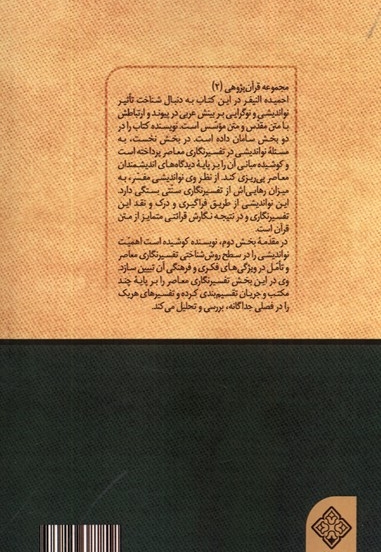 مجموعه قرآن‌پژوهی (۲)
احمیده النیفر در این کتاب به دنبال شناخت تأثیر
نواندیشی و نوگرایی بر بینش عربی در پیوند و ارتباطش
با متن مقدس و متن مؤسس است. نویسنده کتاب را در
دو بخش سامان داده است. در بخش نخست، به
مسئلهٔ نواندیشی در تفسیرنگاری معاصر پرداخته است
و کوشیده مبانی آن را بر پایهٔ دیدگاه‌های اندیشمندان
معاصر پی‌ریزی کند. از نظر وی نواندیشی مفسّر، به
میزان رهایی‌اش از تفسیرنگاری سنتی بستگی دارد.
این نواندیشی از طریق فراگیری و درک و نقد این
تفسیرنگاری و در نتیجه نگارش قرائتی متمایز از متن
قرآن است.
در مقدمهٔ بخش دوم، نویسنده کوشیده است اهمیت
نواندیشی را در سطح روش‌شناختی تفسیرنگاری معاصر
و تأمّل در ویژگی‌های فکری و فرهنگی آن تبیین سازد.
وی در این بخش تفسیرنگاری معاصر را بر پایهٔ چند
مکتب و جریان تقسیم‌بندی کرده و تفسیرهای هریک
را در فصلی جداگانه، بررسی و تحلیل می‌کند.